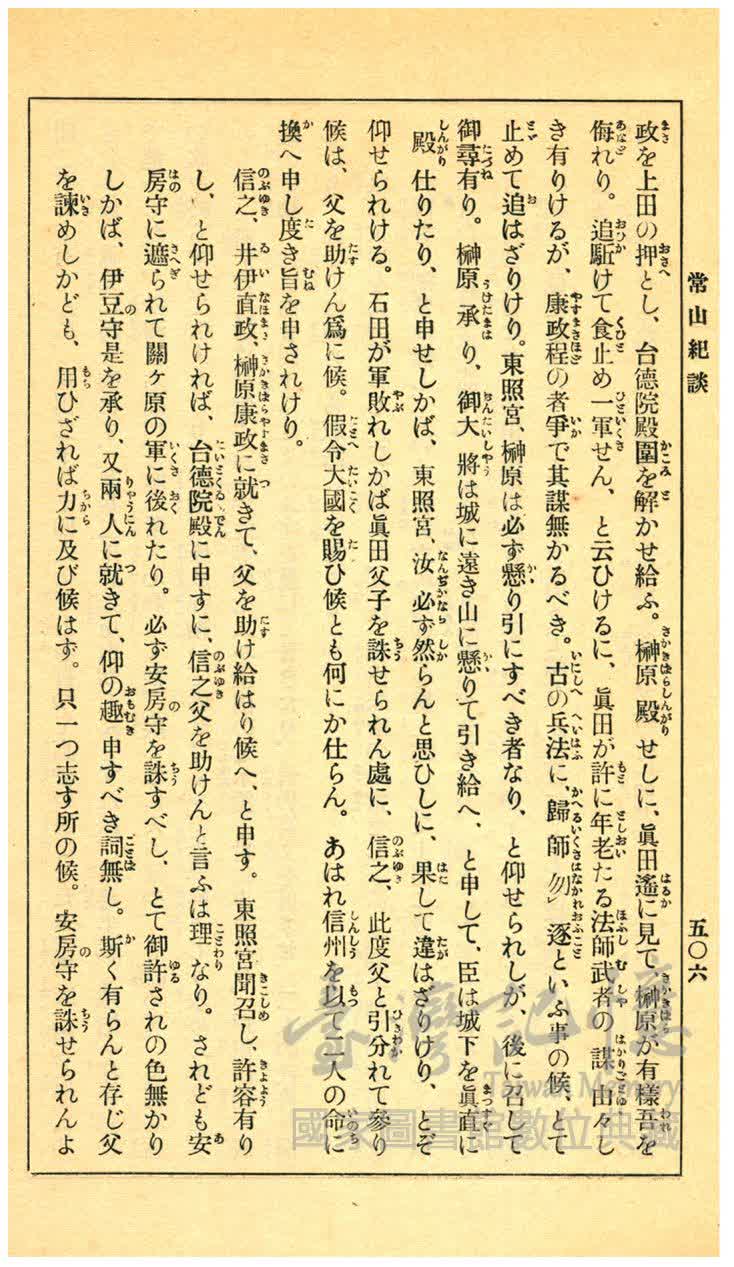 常山紀談
五〇六
政を上田の押とし、台德院殿圍を解かせ給ふ。榊原殿せしに、眞田遙に見て、榊原が有樣吾を
侮れり。追駈けて食止め一軍せん、と云ひけるに、眞田が許に年老たる法師武者の謀由々し
き有りけるが、康政程の者爭で其謀無かるべき。古の兵法に、歸師勿逐といふ事の候、とて
止めて追はざりけり。東照宮、榊原は必ず懸り引にすべき者なり、と仰せられしが、後に召して
御尋有り。榊原承り、御大將は城に遠き山に懸りて引き給へ、と申して、臣は城下を眞直に
殿仕りたり、と申せしかば、東照宮、汝必ず然らんと思ひしに、果して違はざりけり、とぞ
仰せられける。石田が軍敗れしかば眞田父子を誅せられん處に、信之、此度父と引分れて參り
候は、父を助けん爲に候。假令大國を賜ひ候とも何にか仕らん。あはれ信州を以て二人の命に
換へ申し度き旨を申されけり。
信之、井伊直政、榊原康政に就きて、父を助け給はり候へ、と申す。東照宮聞召し、許容有り
し、と仰せられければ、台德院殿に申すに、信之父を助けんと言ふは理なり。されども安
房守に遮られて關ヶ原の軍に後れたり。必ず安房守を誅すべし、とて御許されの色無かり
しかば、伊豆守是を承り、又兩人に就きて、仰の趣申すべき詞無し。斯く有らんと存じ父
を諫めしかども、用ひざれば力に及び候はず。只一つ志す所の候。安房守を誅せられんよ
臺灣記憶
Taiwan Memory
國家圖書館數位典藏